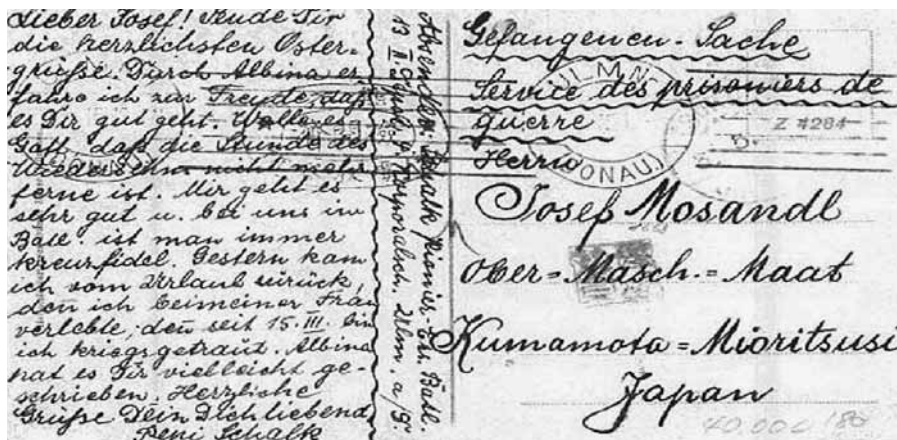 Lieber Josef! Sende Dir
die herzlichsten Oster-
grüße. Durch Albina er-
fahre ich zur Freude, daß
es Dir gut geht. Wolle es
Gott, daß die Stunde des
Wiedersehns nicht mehr
ferne ist. Mir geht es
sehr gut u. bei uns im
Batl. ist man immer
kreuzfidel. Gestern kam
ich vom Urlaub zurück,
den ich bei meiner Frau
verlebte, den seit 15. III. bin
ich kriegsgetraut. Albina
hat es Dir vielleicht ge-
schrieben. Herzliche
Grüße Dein Dich liebend
Peni Schalk
Absender: Schalk Pionier-Ers. Batl.
13 II. 9 Korporalsch. Ulm. a/D.
Gefangenen-Sache
Service des prisonniers de
guerre
Herrn
Josef Mosandl
Ober=Masch.=Maat
Kumamota=Mioritsusi
Japan
ULM
(DONAU)
Z 4284
40.000 180